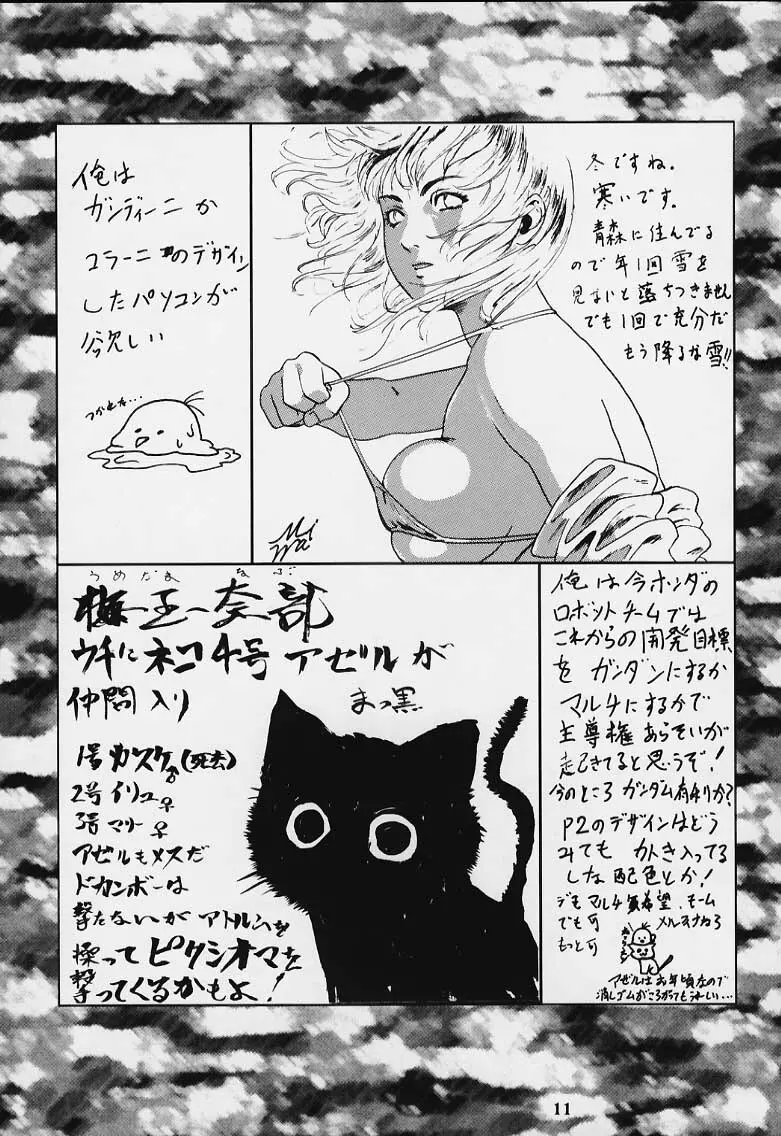 冬ですね。
寒いです。
青森に住んでる
ので年1回雪を
見ないと落ちつきません
でも1回で充分だ
もう降るな雪!!
俺は
ガンディーニか
コラーニのデザイン
したパソコンが
欲しい
つかれた…
うめだま なぶ
梅玉奈部
ウチにネコ4号アゼルが
仲間入り
まっ黒
1号カスケ♂(死去)
2号イリュ♀
3号マリー♀
アゼルもメスだ
ドカンボーは
撃たないがアトルムを
操ってピクシオマを
撃ってくるかもよ!
俺は今ホンダの
ロボットチームでは
これからの開発目標
をガンダンにするか
マルチにするかで
主導権あらそいが
起きてると思うぞ!
今のところガンダム有利か?
P2のデザインはどう
みても
入ってる
しな配色とか!
デモマルチ
希望、モーム
でも可
もっと可
アゼルはお年頃なので
消しゴムがころがってもうれしい…
11